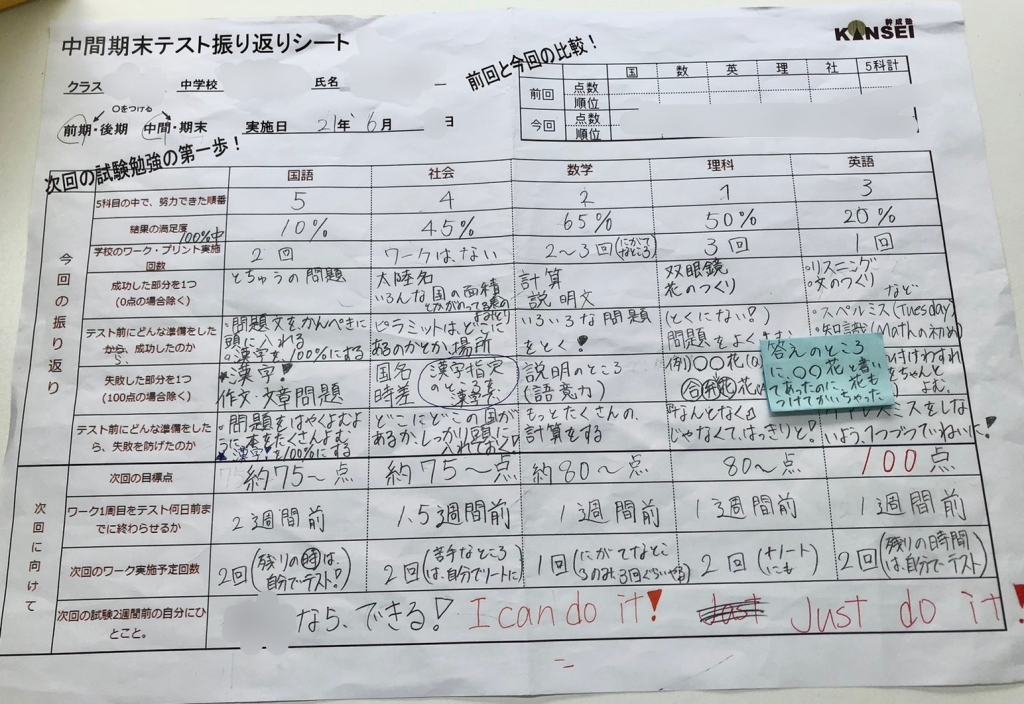 中間期末テスト振り返りシート
幹成塾
KANSEI
クラス 中学校 氏名
前回と今回の比較!
国 数 英 理 社 5科計
前回 点数
順位
今回 点数
順位
○をつける
前期・後期 中間・期末 実施日 21年 6月 日
次回の試験勉強の第一歩!
国語 社会 数学 理科 英語
今回の振り返り
5科目の中で、努力できた順番 5 4 2 1 3
結果の満足度 100%中 10% 45% 65% 50% 20%
学校のワーク・プリント実施回数 2回 ワークはない 2〜3回(にがてなところ) 3回 1回
成功した部分を1つ
(0点の場合除く)
とちゅうの問題
大陸名
いろんな国の面積
計算
説明文
双眼鏡
花のつくり
・リスニング
・文のつくり など
テスト前にどんな準備をしたから、成功したのか
・問題文をかんぺきに
頭に入れる
・漢字を100%にする
ピラミットは、どこに
あるのかとか、場所
いろいろな問題
をとく!
(とくにない?)
問題をよく
・スペルミス(Tuesday)
・知識(Mathの初め
失敗した部分を1つ
(100点の場合除く)
★漢字!
作文・文章問題
国名
時差
漢字指定
のところ
漢字
説明のところ
(語い力)
(例)○○花
合弁花
答えのところ
に○○花と書い
てあったのに、花も
つけてかいちゃった
付けわすれ
ちゃんと
よむ。
テスト前にどんな準備をしたら、失敗を防げたのか
・問題をはやくよむよ
うに、本をたくさんよむ
★漢字を100%にする
どこにどこの国が
あるか、しっかり頭に
入れておく!
もっとたくさんの、
計算をする
「なんとなく」
じゃなくて、はっきりと!
スミスをしな
いよう、1つづつていねいに!
次回に向けて
次回の目標点 約75〜点 約75〜点 約80〜点 80〜点 100点
ワーク1周目をテスト何日前までに終わらせるか 2週間前 1.5週間前 1週間前 1週間前 1週間前
次回のワーク実施予定回数
2回(残りの時は、自分でテスト!)
2回(苦手なところは、自分でノートに)
1回(にがてなところのみ、3回ぐらいやる)
2回(+ノートにも)
2回(残りの時間は、自分でテスト)
次回の試験2週間前の自分にひとこと。 なら、できる! I can do it! Just do it!